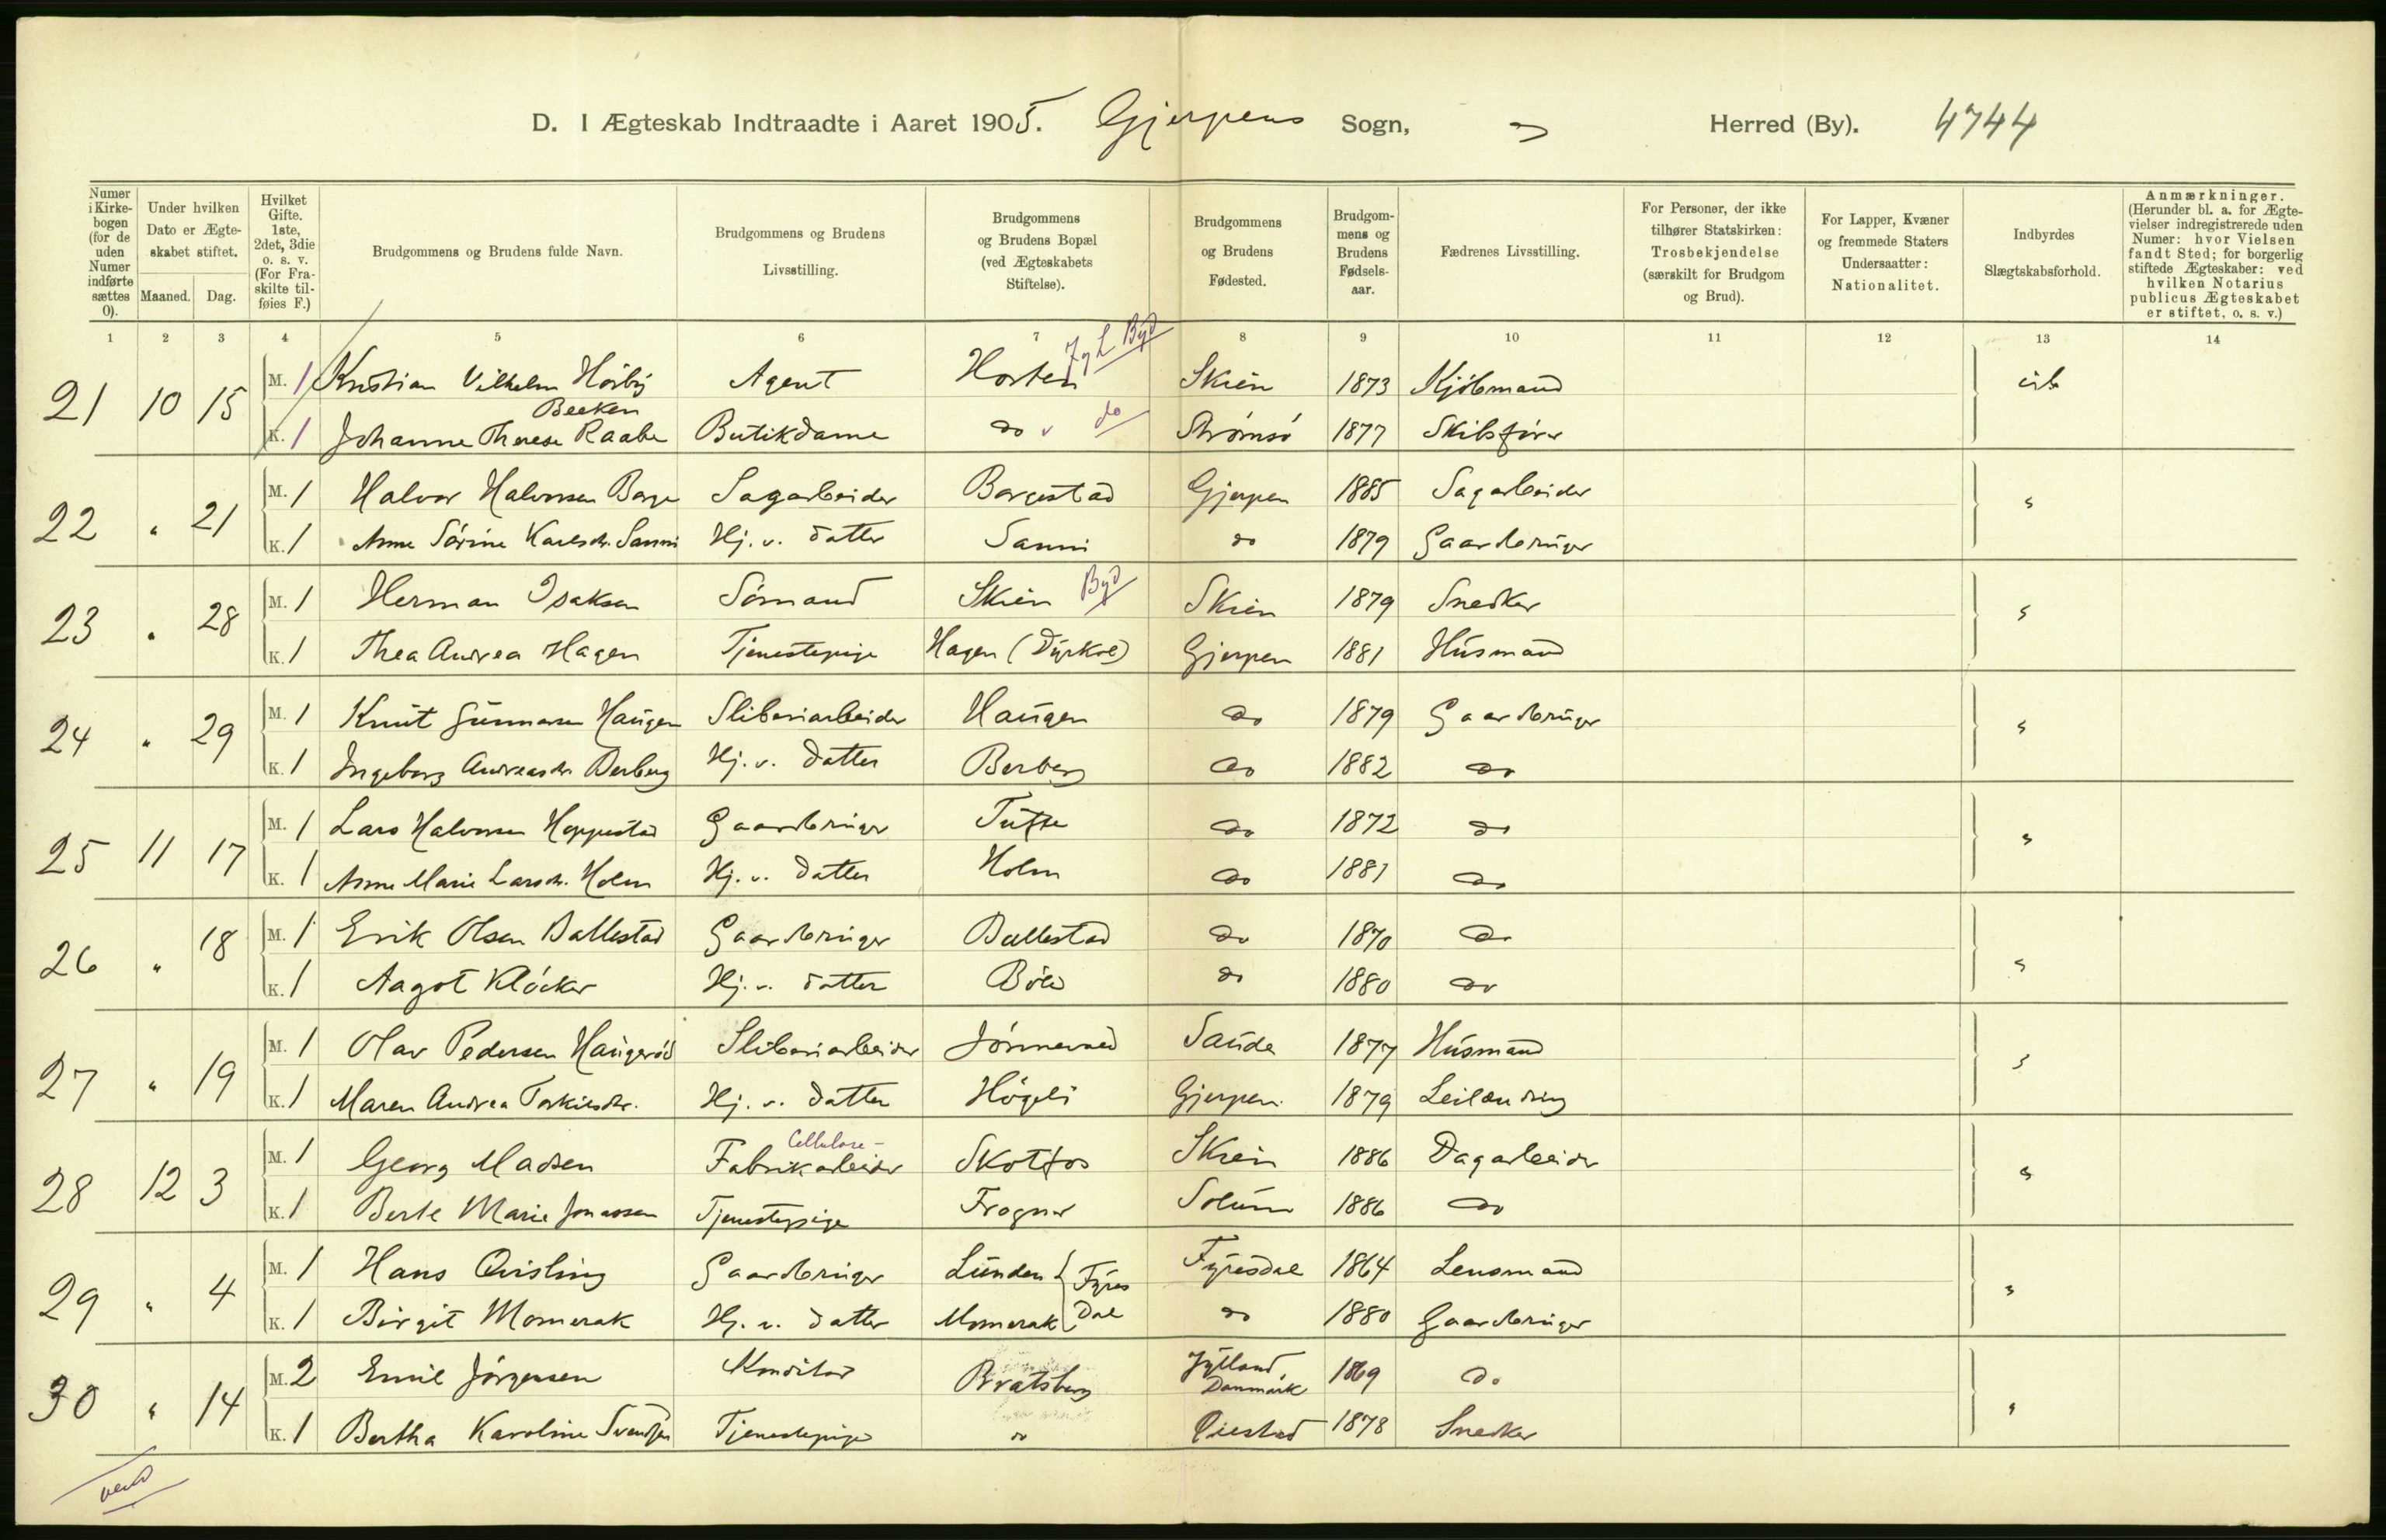 D. I Ægteskab Indtraadte i Aaret 1905. Gjerpens Sogn, Herred (By). 4744
Numer i Kirkebogen (for de uden Numer indførte sættes 0).
Under hvilken Dato er Ægteskabet stiftet.
Maaned. Dag.
Hvilket Gifte. 1ste, 2det, 3die o. s. v. (For Fraskilte tilføies F.)
Brudgommens og Brudens fulde Navn.
Brudgommens og Brudens Livsstilling.
Brudgommens og Brudens Bopæl (ved Ægteskabets Stiftelse).
Brudgommens og Brudens Fødested.
Brudgommens og Brudens Fødselsaar.
Fædrenes Livsstilling.
For Personer, der ikke tilhører Statskirken: Trosbekjendelse (særskilt for Brudgom og Brud).
For Lapper, Kvæner og fremmede Staters Undersaatter: Nationalitet.
Indbyrdes Slægtskabsforhold.
Anmærkninger. (Herunder bl. a. for Ægtevielser indregistrerede uden Numer: hvor Vielsen fandt Sted; for borgerlig stiftede Ægteskaber: ved hvilken Notarius publicus Ægteskabet er stiftet, o. s. v.)
1 2 3 4 5 6 7 8 9 10 11 12 13 14
21 10 15 M. 1 Kristian Vilhelm Höiby Agent Horten Byd Skien 1873 Kjöbmand
Beeken
K. 1 Johanne Therese Raabe Butikdame do do Strömsö 1877 Skibsförer
22 " 21 M. 1 Halvor Halvorsen Borge Sagarbeider Borgestad Gjerpen 1885 Sagarbeider "
K. 1 Anne Sörine Karlsdr. Sanni Hj. v. datter Sanni do 1879 Gaardbruger
23 " 28 M. 1 Herman Isaksen Sömand Skien Byd Skien 1879 Snedker "
K. 1 Thea Andrea Hagen Tjenestepige Hagen (Dyrkol) Gjerpen 1881 Husmand
24 " 29 M. 1 Knut Gunnarsen Haugen Sliberiarbeider Haugen do 1879 Gaardbruger "
K. 1 Ingeborg Andreasdr. Berberg Hj. v. datter Berberg do 1882 do
25 11 17 M. 1 Lars Halvorsen Hoppestad Gaardbruger Tufte do 1872 do "
K. 1 Anne Marie Larsdr. Holm Hj. v. datter Holm do 1881 do
26 " 18 M. 1 Erik Olsen Ballestad Gaardbruger Ballestad do 1870 do "
K. 1 Aagot Klöcker Hj. v. datter Böle do 1880 do
27 " 19 M. 1 Olav Pedersen Haugeröd Sliberiarbeider Jönnevald Saude 1877 Husmand "
K. 1 Maren Andrea Torkilsdr. Hj. v. datter Högeli Gjerpen 1879 Leilænding
Cellulose-
28 12 3 M. 1 Georg Madsen Fabrikarbeider Skotfos Skien 1886 Dagarbeider "
K. 1 Berte Marie Jonassen Tjenestepige Frogner Solum 1886 do
29 " 4 M. 1 Hans Qvisling Gaardbruger Lunden Fyresdal Fyresdal 1864 Lensmand "
K. 1 Birgit Momrak Hj. v. datter Momrak do 1880 Gaardbruger
30 " 14 M. 2 Emil Jörgensen Konditor Bratsberg Jylland Danmark 1869 do "
K. 1 Bertha Karoline Svendsen Tjenestepige do Siestad 1878 Snedker